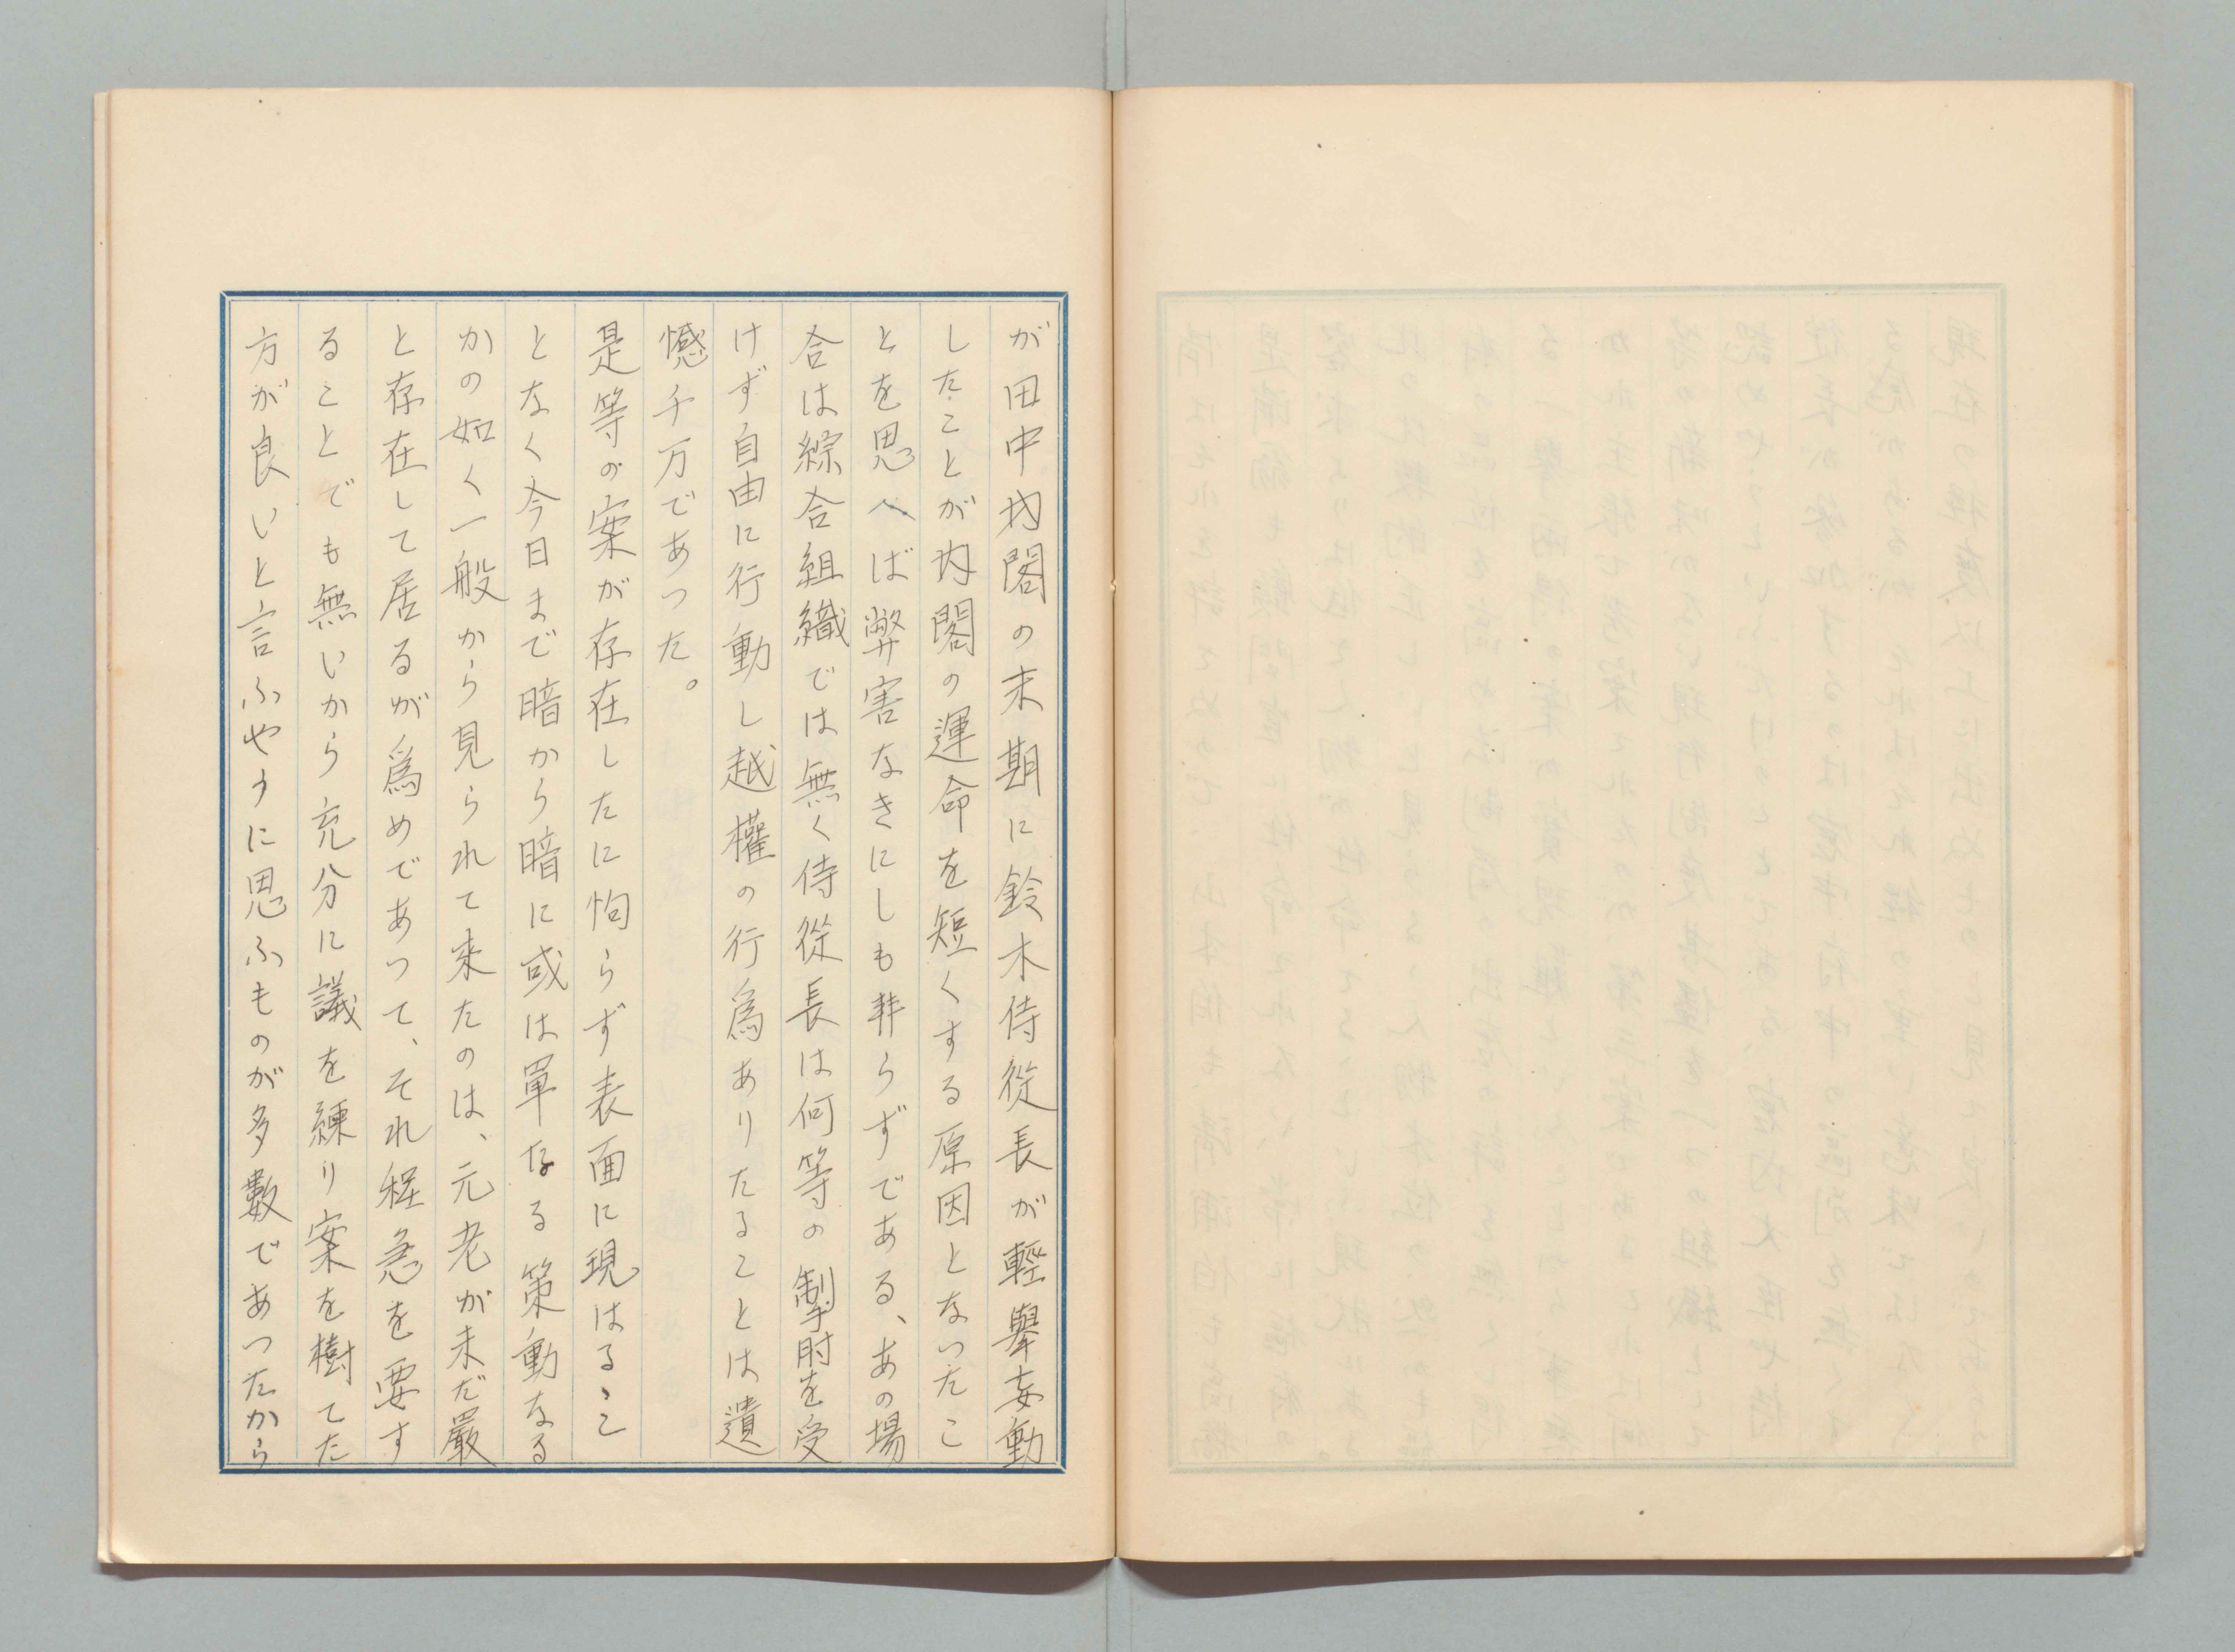 が田中内閣の末期に鈴木侍從長が輕擧妄動
したことが内閣の運命を短くする原因となつたこ
とを思へば弊害なきにしも非らずである、あの場
合は綜合組織では無く侍從長は何等の掣肘を受
けず自由に行動し越權の行爲ありたることは遺
憾千万であつた。
是等の案が存在したに拘らず表面に現はるゝこ
となく今日まで暗から暗に或は單なる策動なる
かの如く一般から見られて來たのは、元老が未だ嚴
と存在して居るが爲めであつて、それ程急を要す
ることでも無いから充分に議を練り案を樹てた
方が良いと言ふやうに思ふものが多數であつたから